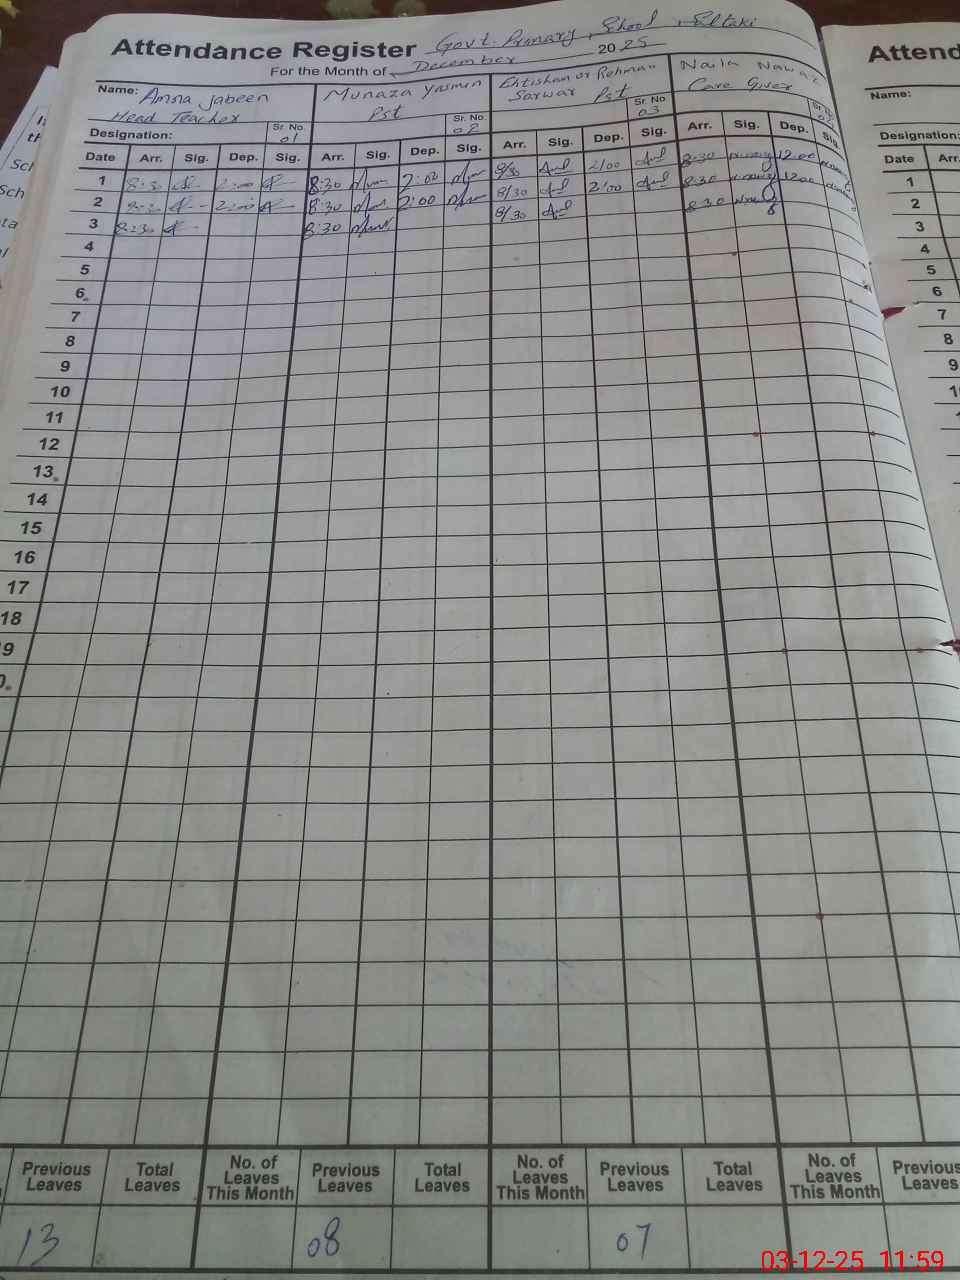 Attendance Register Govt. Primary School Saltaki
For the Month of December 2025
Name: Amna Jabeen Munaza Yasmin Ehtisham ur Rehman Naila Nawaz
Head Teacher Pst Sarwar Pst Care Giver
Designation: Sr. No. 01 Sr. No. 02 Sr. No. 03 Sr. No.
Date Arr. Sig. Dep. Sig. Arr. Sig. Dep. Sig. Arr. Sig. Dep. Sig. Arr. Sig. Dep. Sig.
1 8:30 2:00 8:30 2:00 8/30 2/00 8:30 12:00
2 8:30 2:00 8:30 2:00 8/30 2:00 8:30 1200
3 8:30 8:30 8/30 8:30
4
5
6
7
8
9
10
11
12
13
14
15
16
17
18
9
0
Previous Leaves Total Leaves No. of Leaves This Month Previous Leaves Total Leaves No. of Leaves This Month Previous Leaves Total Leaves No. of Leaves This Month Previous Leaves
13 08 07
Attend
Name:
Designation:
Date Arr.
1
2
3
4
5
6
7
8
9
03-12-25 11:59